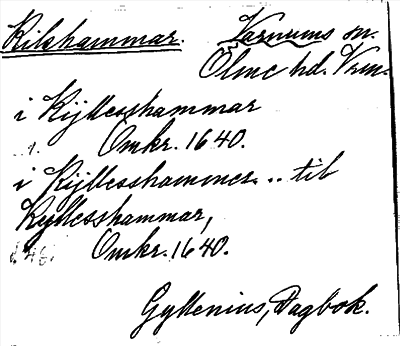 Kilshammar. Varnums sn.
Ölme hd. Vrm.
i Kijllesshammar
Omkr. 1640.
i Kijllesshammer... til
Kyllesshammar,
Omkr. 1640.
Gyllenius, Dagbok.